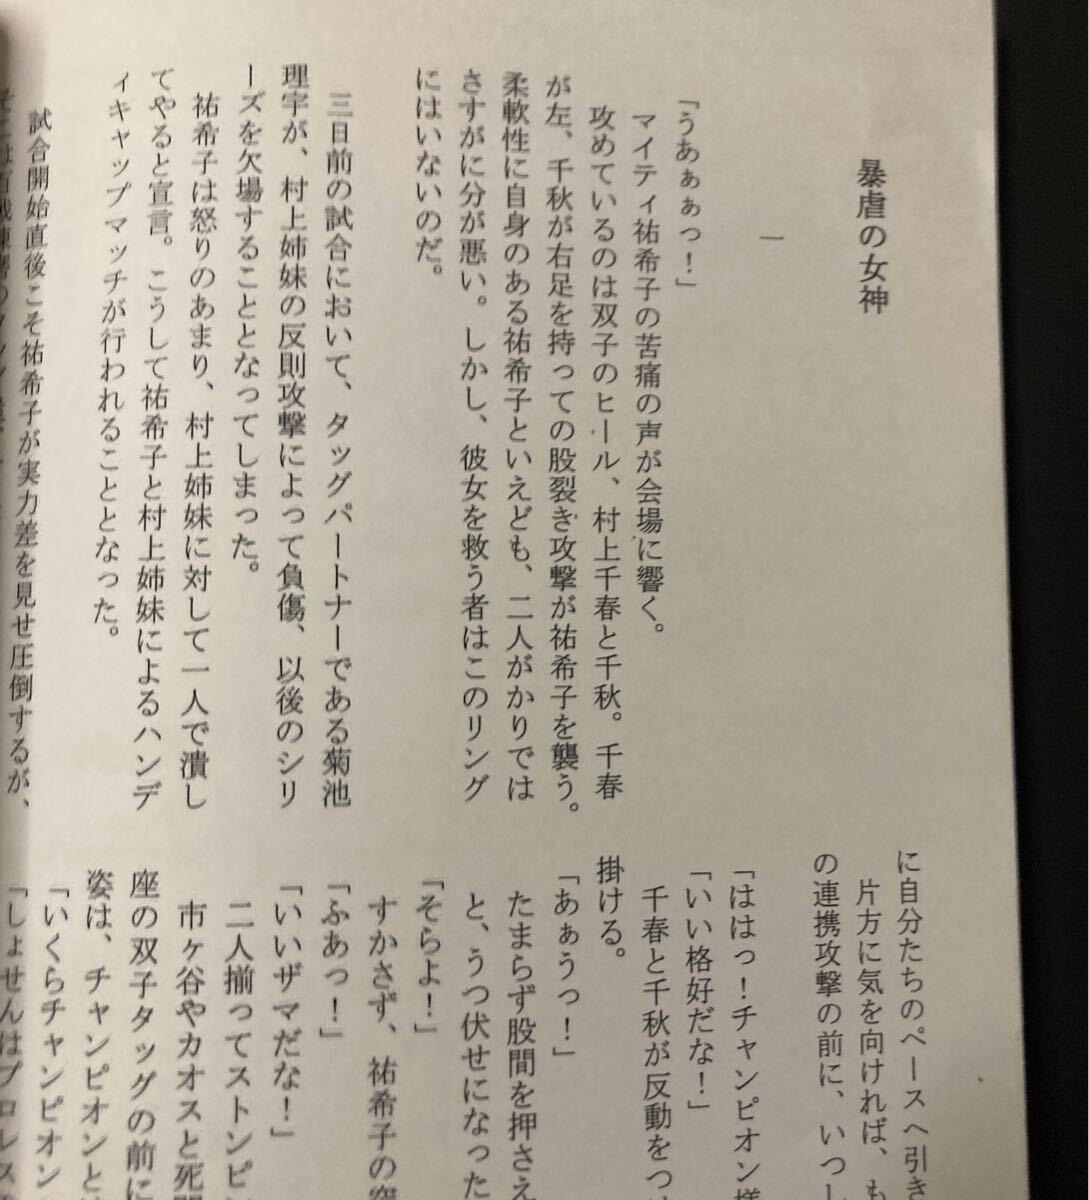 暴虐の女神
一
「うあぁぁっ！」
マイティ祐希子の苦痛の声が会場に響く。
攻めているのは双子のヒール、村上千春と千秋。千春
が左、千秋が右足を持っての股裂き攻撃が祐希子を襲う。
柔軟性に自身のある祐希子といえども、二人がかりでは
さすがに分が悪い。しかし、彼女を救う者はこのリング
にはいないのだ。
三日前の試合において、タッグパートナーである菊池
理宇が、村上姉妹の反則攻撃によって負傷、以後のシリ
ーズを欠場することとなってしまった。
祐希子は怒りのあまり、村上姉妹に対して一人で潰し
てやると宣言。こうして祐希子と村上姉妹によるハンデ
ィキャップマッチが行われることとなった。
試合開始直後こそ祐希子が実力差を見せ圧倒するが、
に自分たちのペースへ引き
片方に気を向ければ、も
の連携攻撃の前に、いつし
「ははっ！チャンピオン様
「いい格好だな！」
千春と千秋が反動をつけ
掛ける。
「あぁうっ！」
たまらず股間を押さえ
と、うつ伏せになった
「そらよ！」
すかさず、祐希子の
「ふあっ！」
「いいザマだな！」
二人揃ってストンピン
市ヶ谷やカオスと死闘
座の双子タッグの前に
姿は、チャンピオンと
「いくらチャンピオン
「しょせんはプロレス